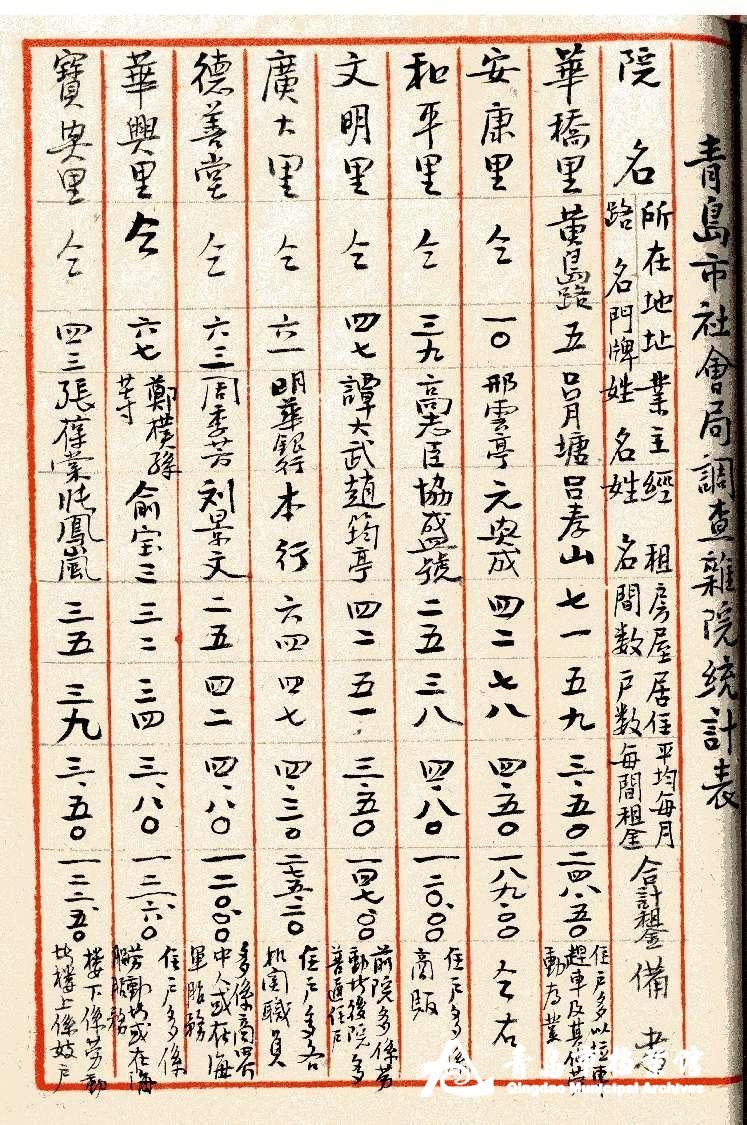 青島市社會局調查雜院統計表
院名 所在地址 路名 門牌 業主姓名 經租姓名 房屋間数 居住户数 平均每月每間租金 合計租金 備考
華僑里 黄島路 五 吕月塘 吕孝山 七一 五九 三.五〇 二四八.五〇 住户多以拉車趕車及其他劳動為業
安康里 仝 一〇 邢雲亭 元興成 四二 七八 四.五〇 一八九.〇〇 仝右
和平里 仝 三九 高志臣 協盛號 二五 三八 四.八〇 一二〇.〇〇 住户多係商販
文明里 仝 四七 譚大武 趙筠亭 四二 五一 三.五〇 一四七.〇〇 前院多係劳動者後院多普通住户
廣大里 仝 六一 明華銀行 本行 六四 四七 四.三〇 二七五.二〇 住户多各机関職員
德善堂 仝 六三 周季芳 刘景文 二五 四二 四.八〇 一二〇.〇〇 多係商界中人或在海軍服務
華興里 仝 六七 鄭樸孫等 俞宝三 三二 三四 三.八〇 一三六.〇 住户多係劳動者或在海服務
寶興里 仝 四三 張葆棠 鳳嵐 三五 三九 三.五〇 一二二.五〇 楼下係劳動者楼上係妓户
青島市檔案館
Qingdao Municipal Archives